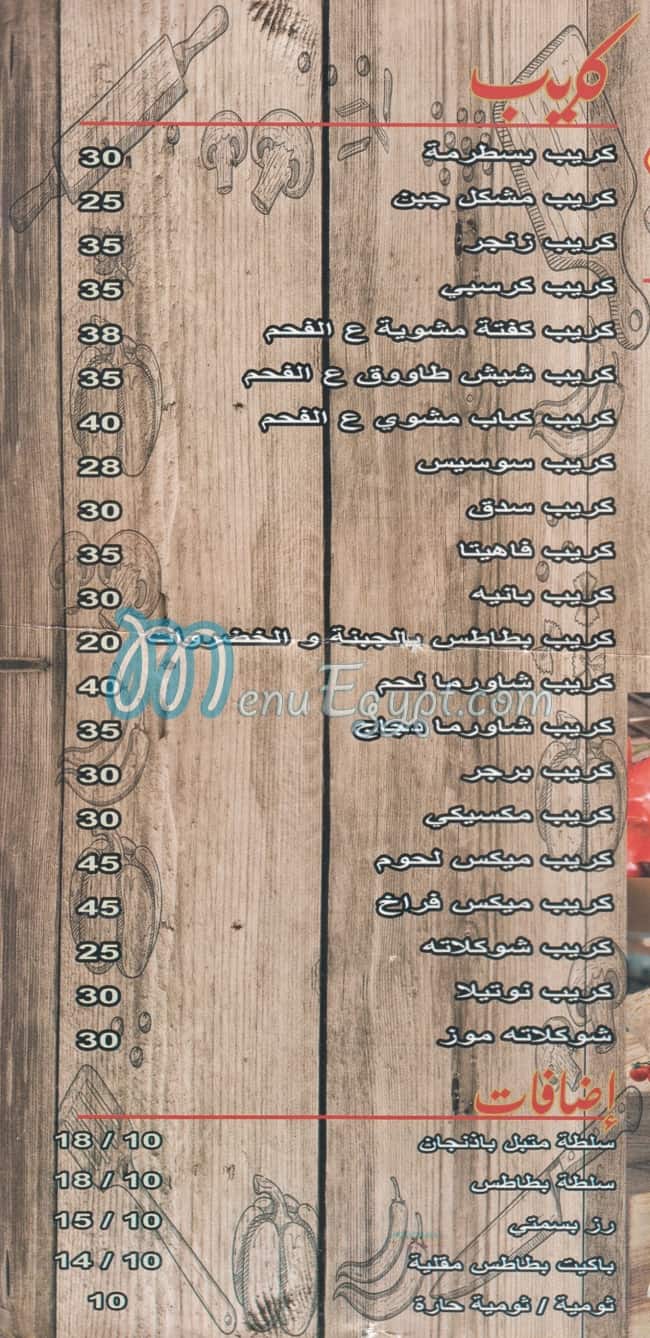 كريب
كريب بسطرمة 30
كريب مشكل جبن 25
كريب زنجر 35
كريب كرسبي 35
كريب كفتة مشوية ع الفحم 38
كريب شيش طاووق ع الفحم 35
كريب كباب مشوي ع الفحم 40
كريب سوسيس 28
كريب سدق 30
كريب فاهيتا 35
كريب بانيه 30
كريب بطاطس بالجبنة و الخضروات 20
كريب شاورما لحم 40
MenuEgypt.com
كريب شاورما دجاج 35
كريب برجر 30
كريب مكسيكي 30
كريب ميكس لحوم 45
كريب ميكس فراخ 45
كريب شوكلاته 25
كريب نوتيلا 30
شوكلاته موز 30
إضافات
سلطة متبل باذنجان 10 / 18
سلطة بطاطس 10 / 18
رز بسمتي 10 / 15
باكيت بطاطس مقلية 10 / 14
ثومية / ثومية حارة 10